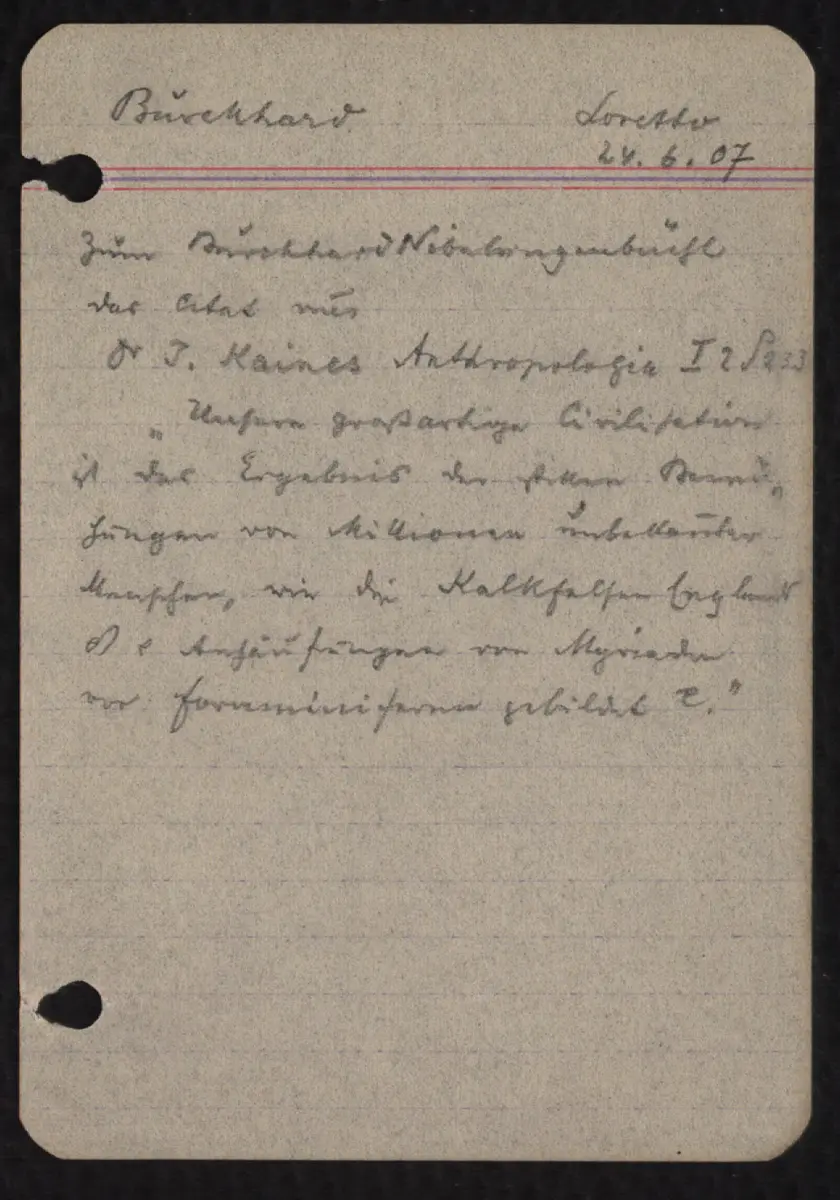 Burckhard Loretto
24. 6. 07
Zum Burckhard Nibelungenbüchl
das Citat aus
Dr J. Kaines Anthropologie I 2 S 233
„Unsere großartige Civilisation
ist das Ergebnis der stillen Bemü„
hungen von Millionen unbekannter
Menschen, wie die Kalkfelsen Englands
Anhäufungen von Myriaden
von Foraminiferen gebildet